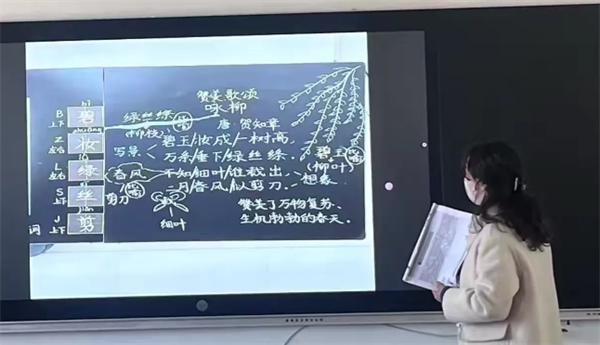 赞美歌颂
咏柳
绿丝绦
唐·贺知章
(柳枝)
B 上下 碧
碧玉/妆成/一树高,
zhuāng
Z 左右 妆
写景
万条/垂下/绿丝绦.
碧玉
(柳叶)
L 左右 绿
春风
不知/细叶/谁裁出,
想象
S 上下 丝
二月/春风/似剪刀.
剪刀
J 上下 剪
赞美了万物复苏、
词
细叶
生机勃勃的春天。